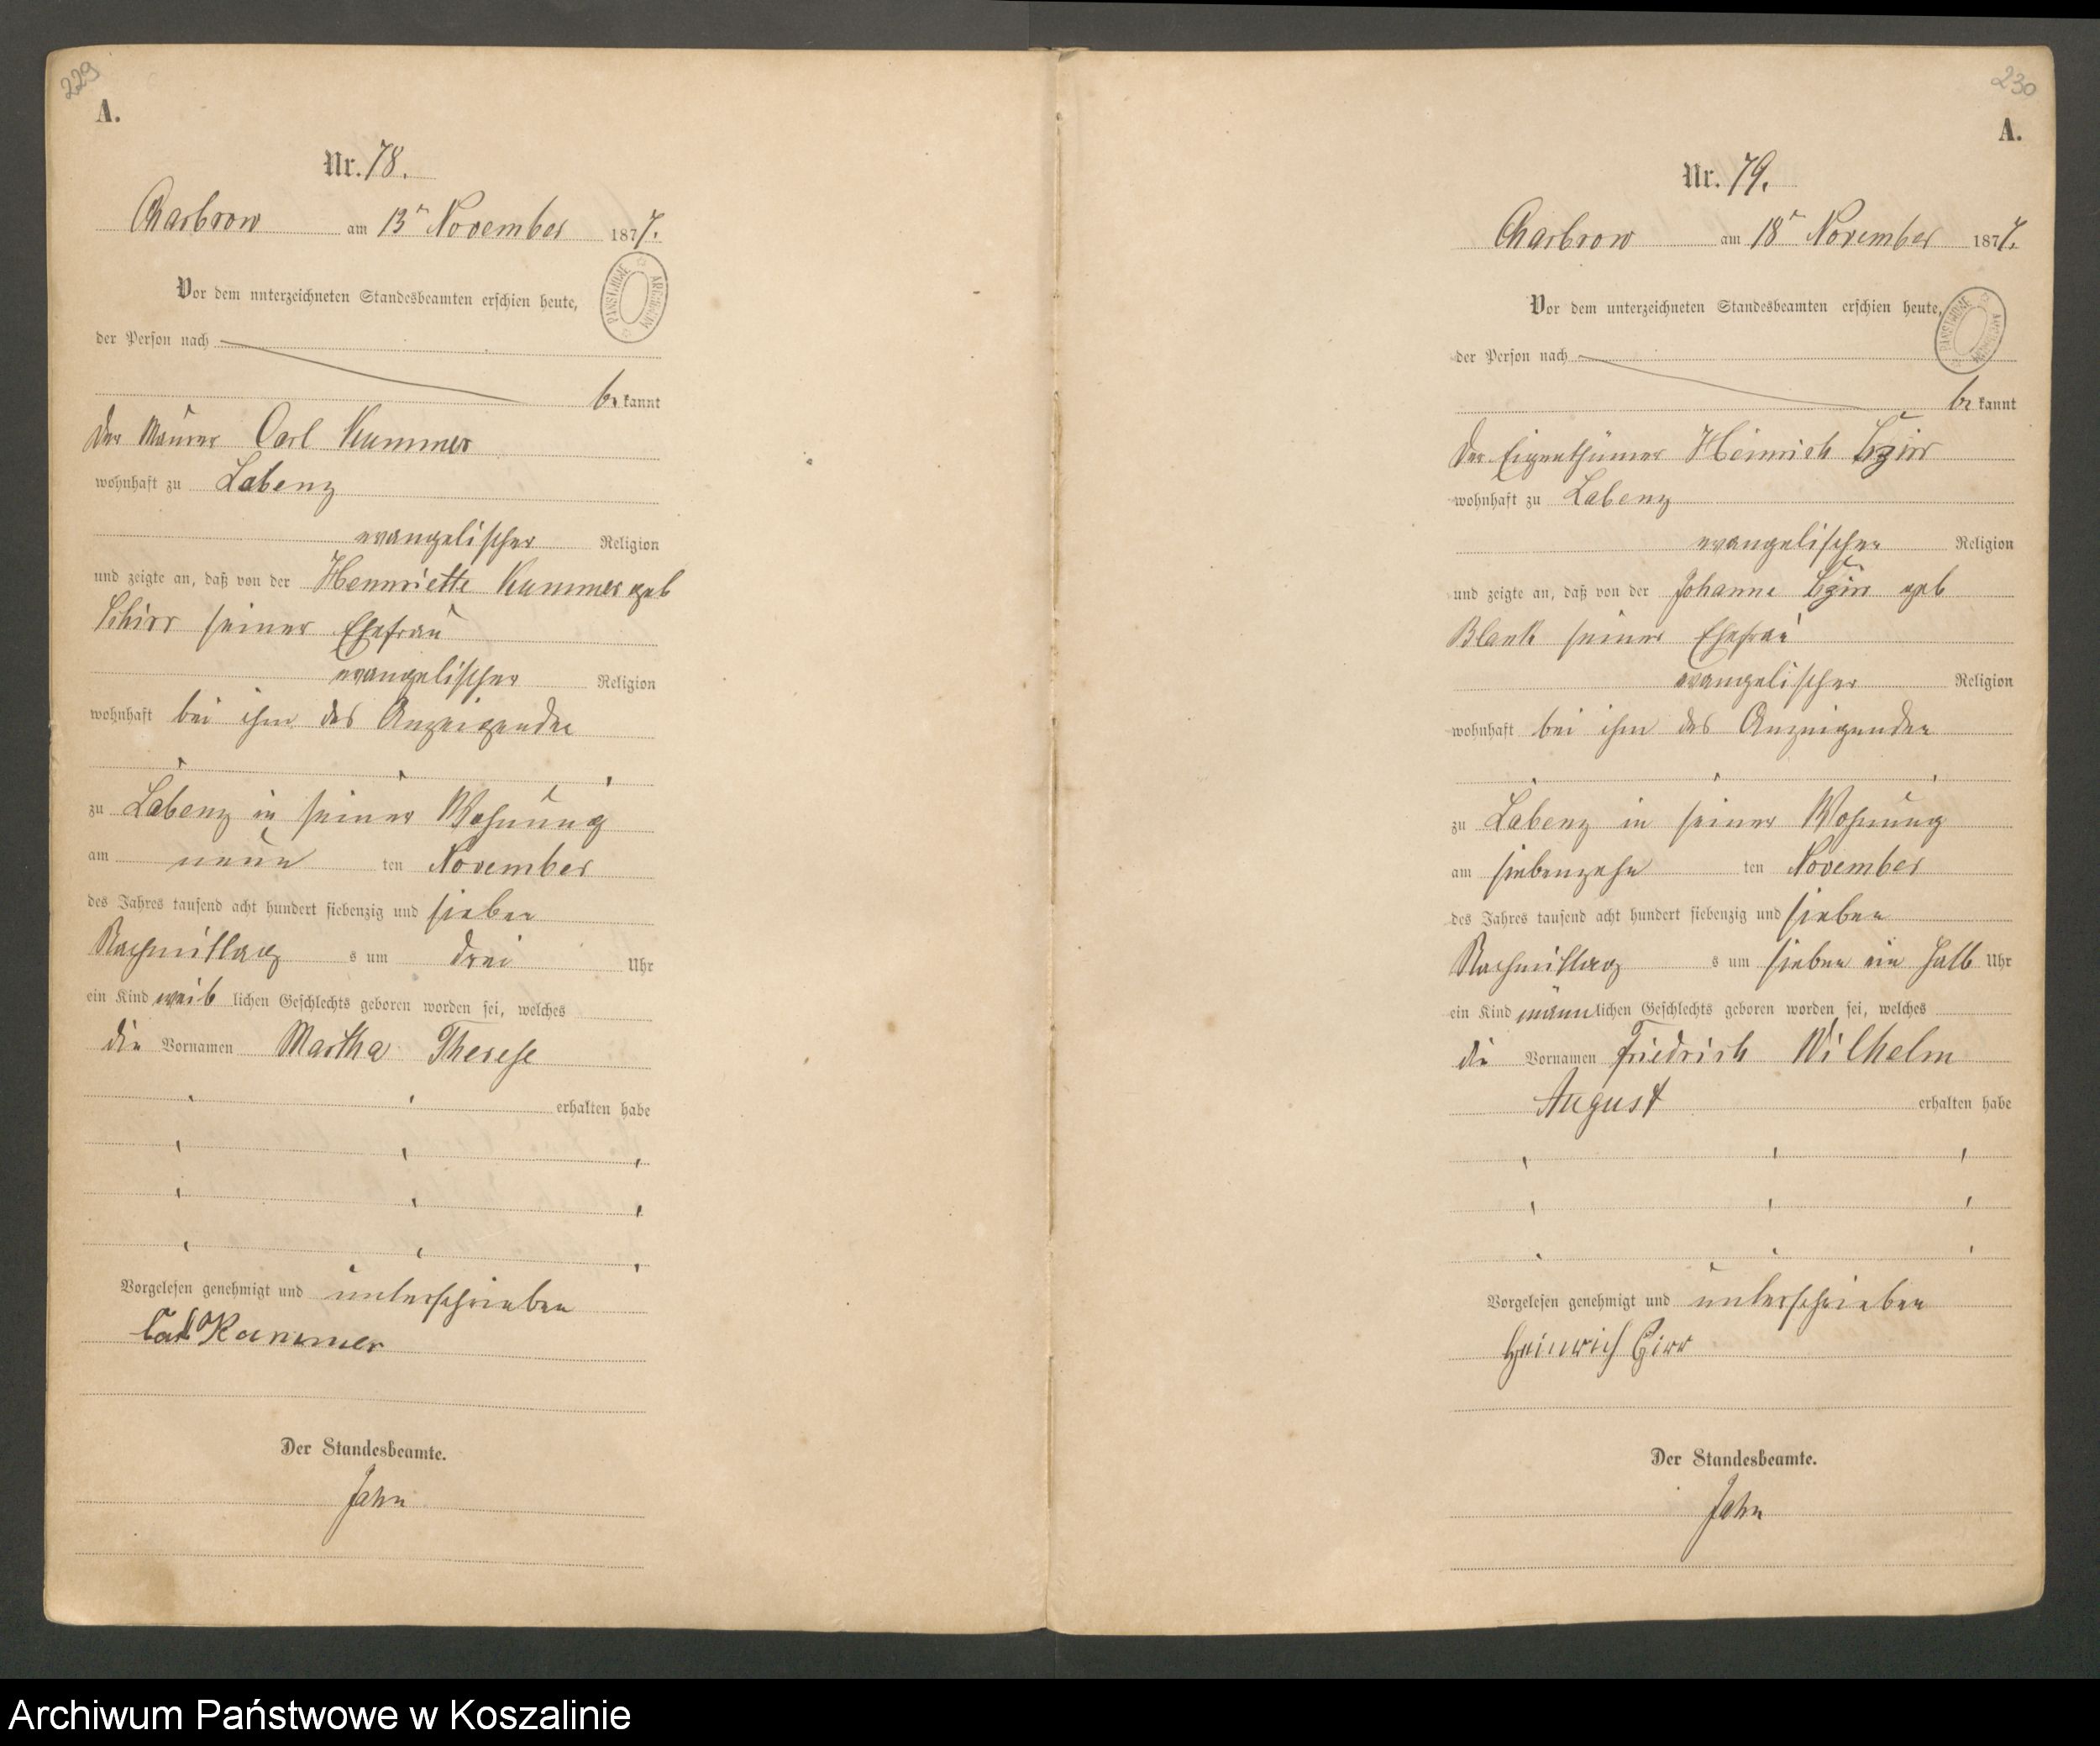 229
A.
Nr. 78.
Charbrow am 13n November 1877.
Vor dem unterzeichneten Standesbeamten erschien heute,
der Person nach
be kannt
der Maurer Carl Kummer
wohnhaft zu Labenz
evangelischer Religion
und zeigte an, daß von der Hennriette Kummer geb
Schirr seiner Ehefrau
evangelischer Religion
wohnhaft bei ihm des Anzeigenden
zu Labenz in seiner Wohnung
am neun ten November
des Jahres tausend acht hundert siebenzig und sieben
Nachmittag s um drei Uhr
ein Kind weib lichen Geschlechts geboren worden sei, welches
die Vornamen Martha Therese
erhalten habe
Vorgelesen genehmigt und unterschrieben
Carl Kummer
Der Standesbeamte.
Jahn
PAŃSTWOWE ARCHIWUM
230
A.
Nr. 79.
Charbrow am 18n November 1877.
Vor dem unterzeichneten Standesbeamten erschien heute,
der Person nach
be kannt
der Eigenthümer Heinrich
wohnhaft zu Labenz
evangelischer Religion
und zeigte an, daß von der Johanne geb
Blank seiner Ehefrau
evangelischer Religion
wohnhaft bei ihm des Anzeigenden
zu Labenz in seiner Wohnung
am siebenzehn ten November
des Jahres tausend acht hundert siebenzig und sieben
Nachmittag s um sieben ein halb Uhr
ein Kind männ lichen Geschlechts geboren worden sei, welches
die Vornamen Friedrich Wilhelm
August erhalten habe
Vorgelesen genehmigt und unterschrieben
Heinrich
Der Standesbeamte.
Jahn
PAŃSTWOWE ARCHIWUM
Archiwum Państwowe w Koszalinie